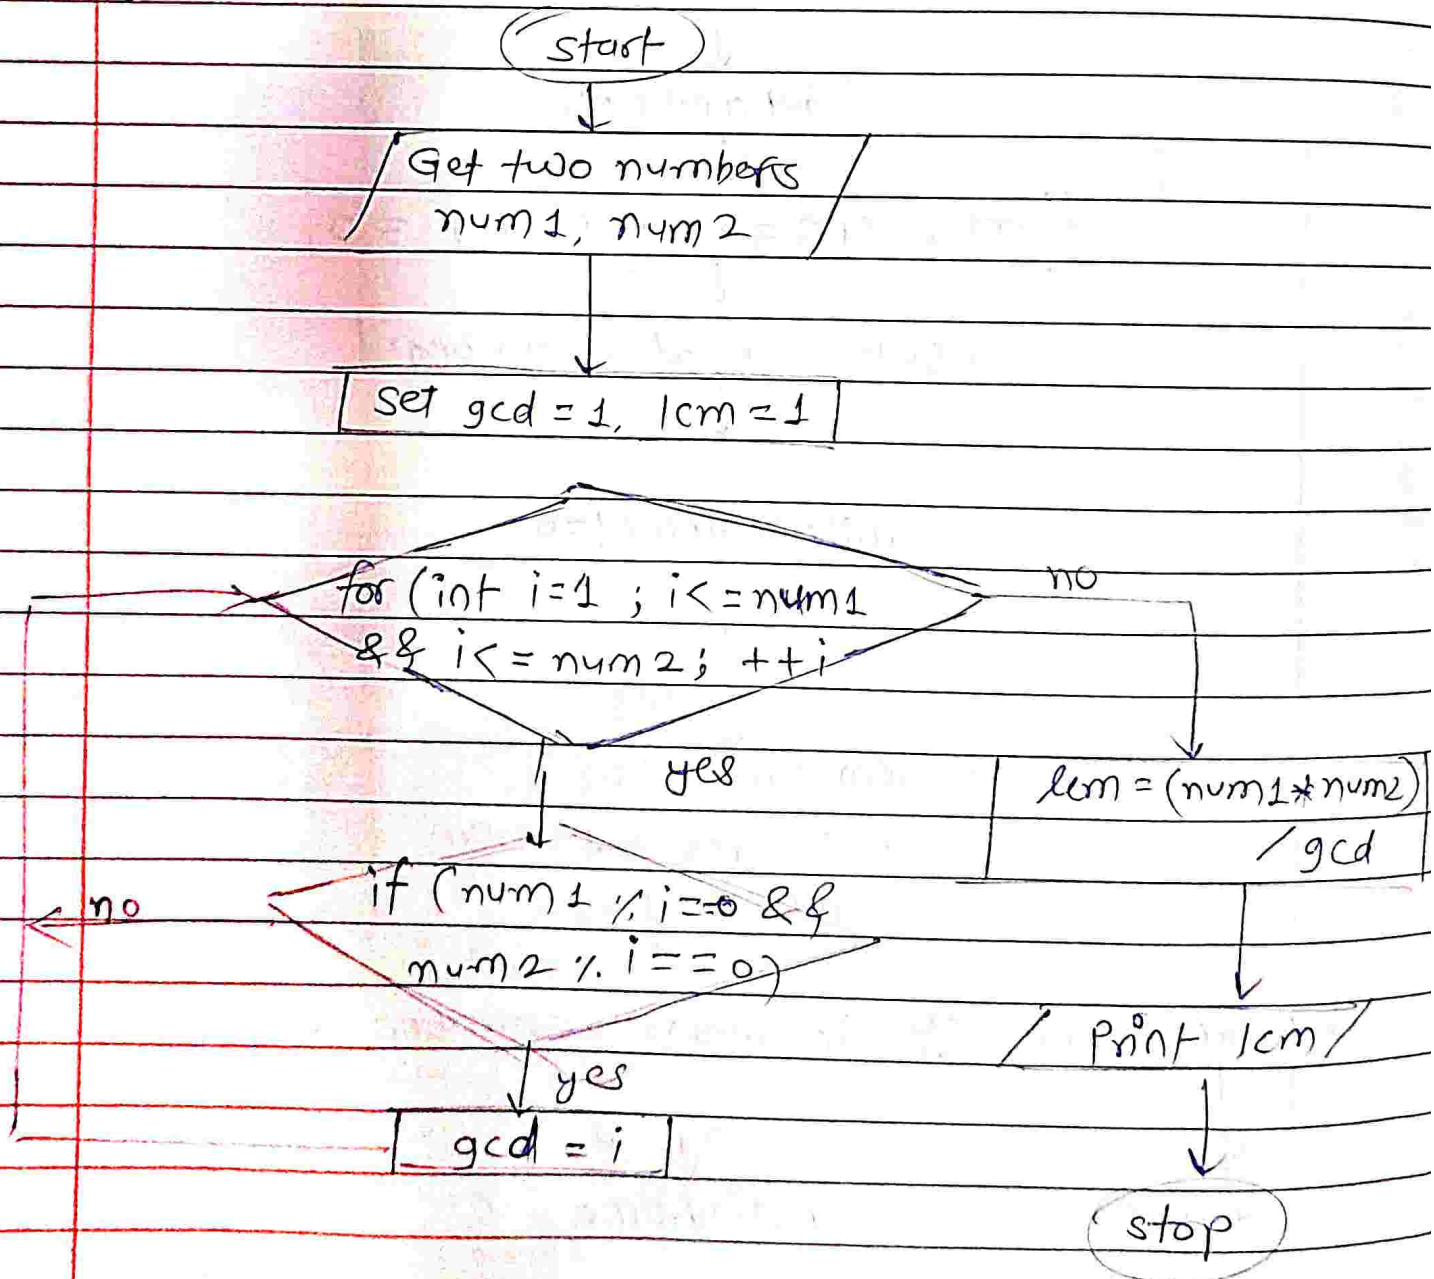 start
Get two numbers
num1, num2
Set gcd = 1, lcm = 1
for (int i=1 ; i<=num1
&& i<= num2; ++i
no
yes
lcm = (num1*num2)
/gcd
if (num1 % i==0 &&
num2 % i==0)
no
Print lcm
yes
gcd = i
stop